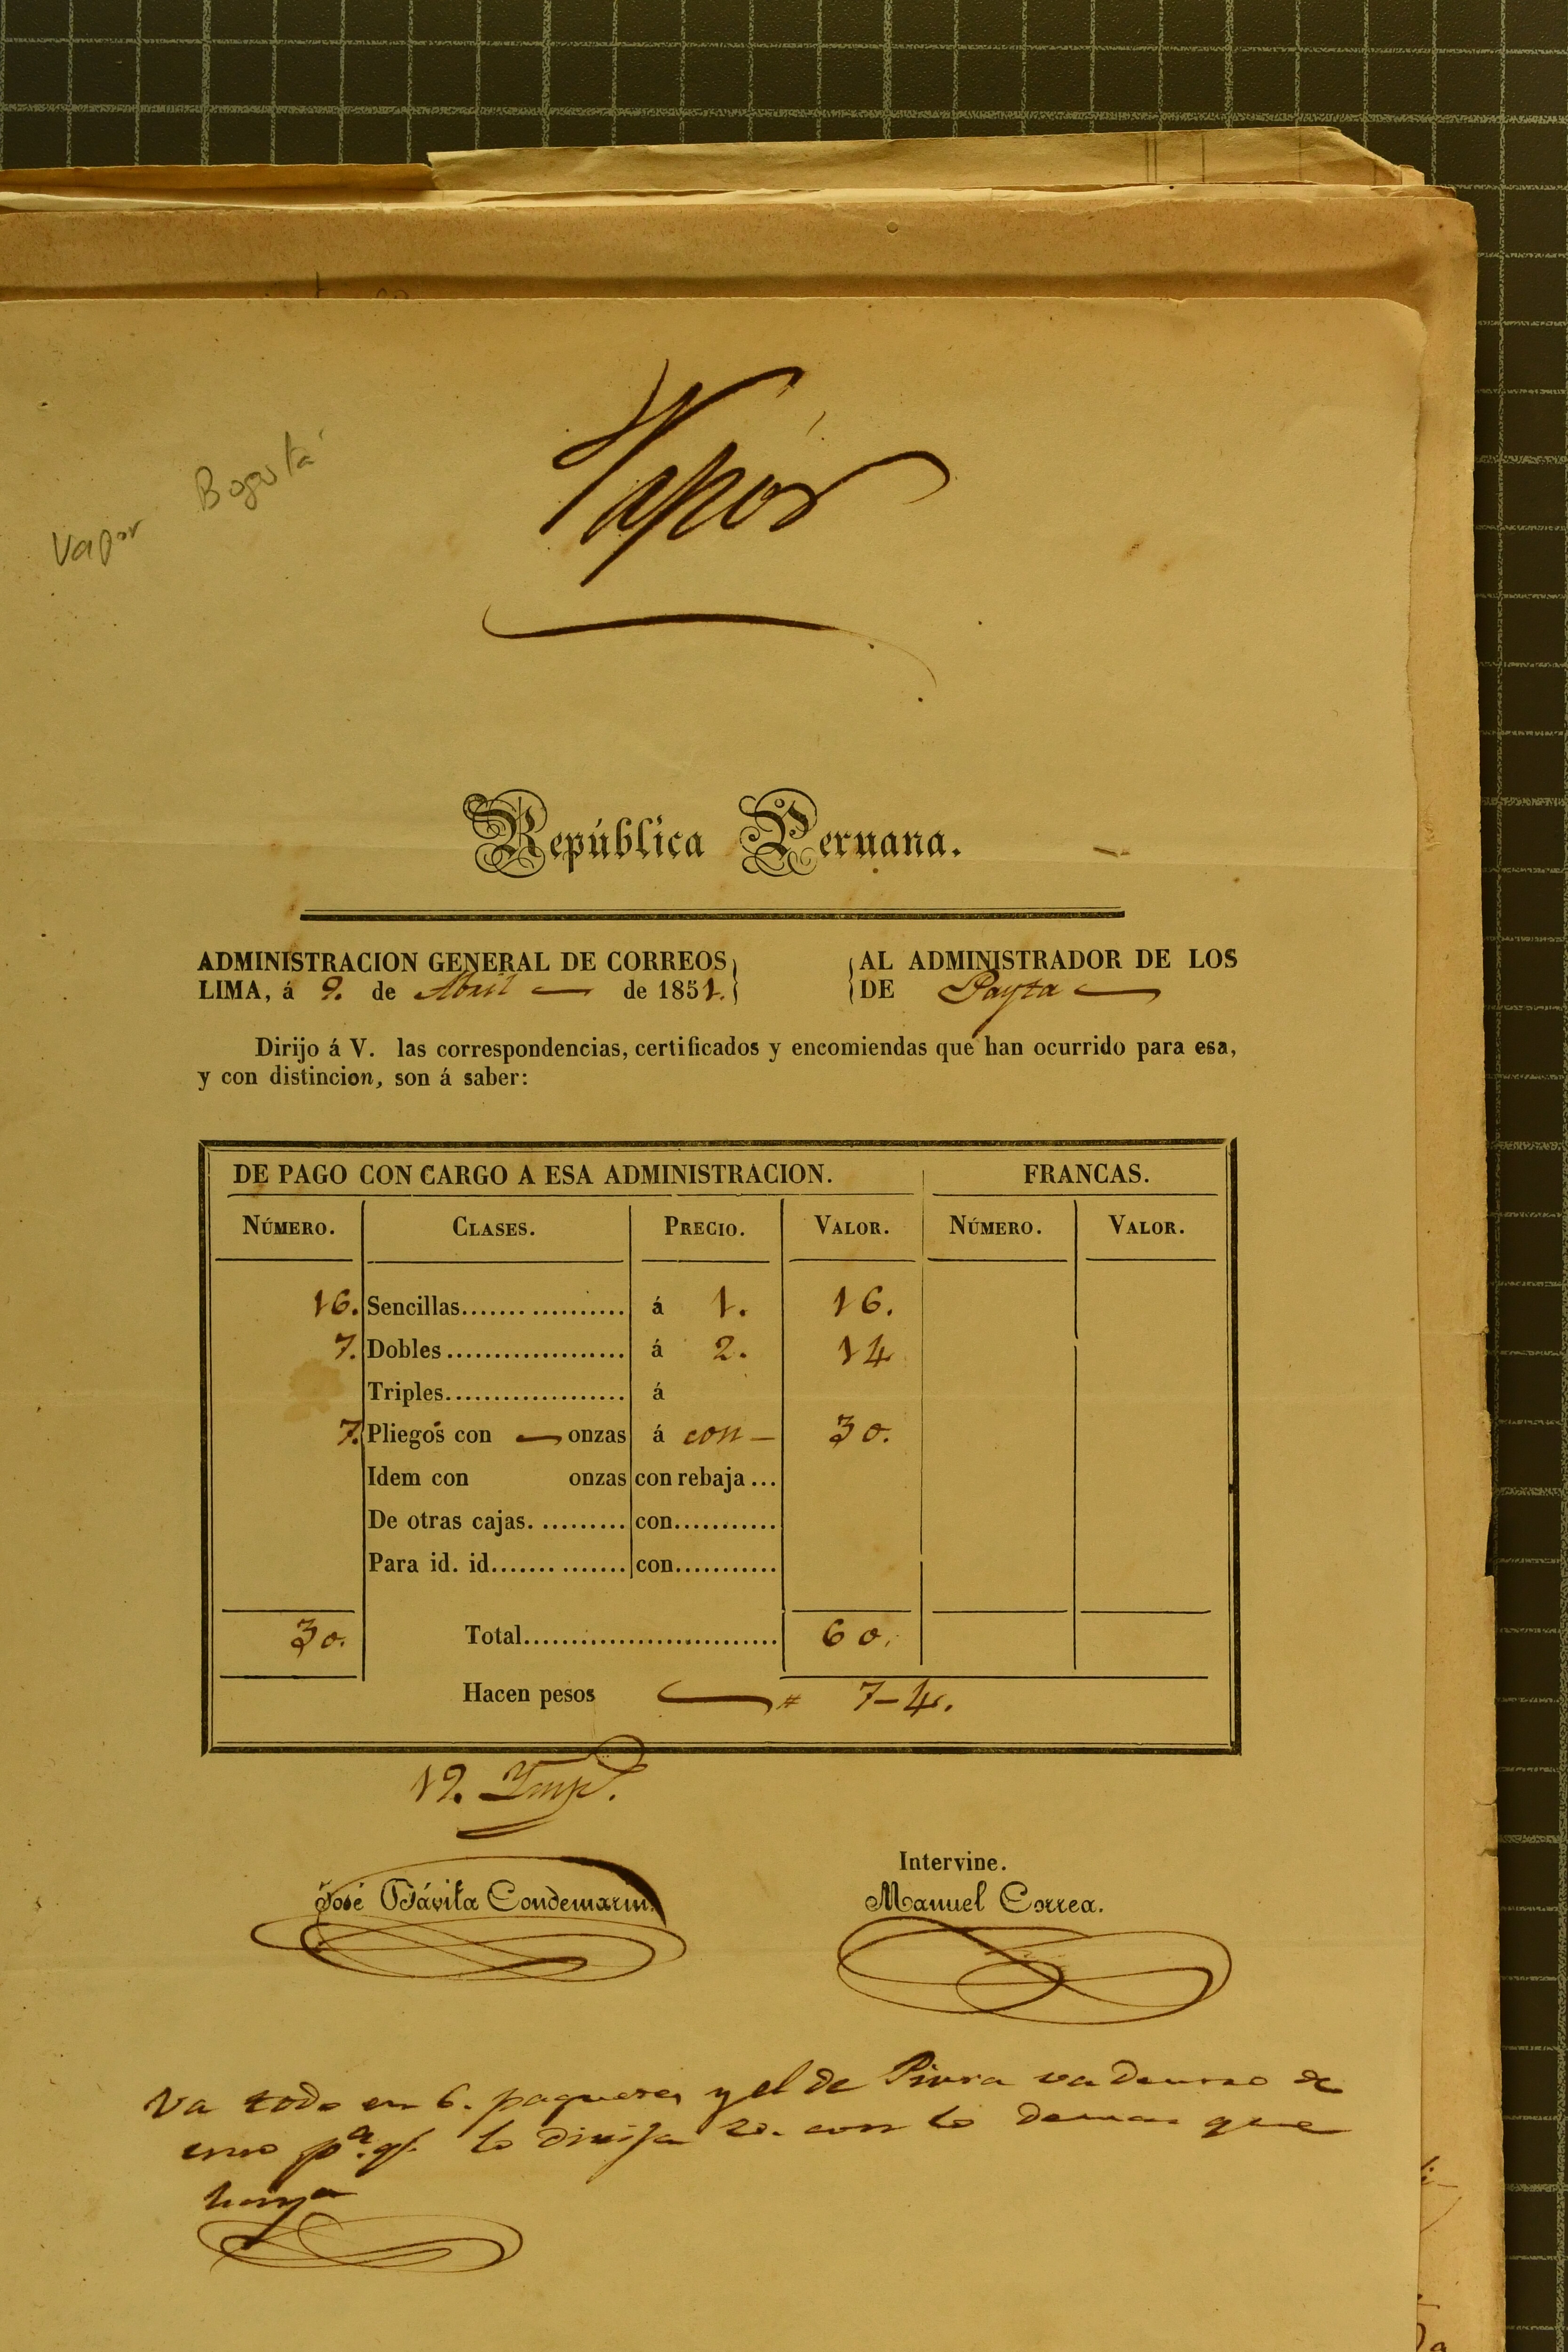 Vapor
Vapor Bogotá
República Peruana.
ADMINISTRACION GENERAL DE CORREOS
LIMA, á 9. de Abril de 1851.
AL ADMINISTRADOR DE LOS
DE Payta
Dirijo á V. las correspondencias, certificados y encomiendas que han ocurrido para esa,
y con distincion, son á saber:
DE PAGO CON CARGO A ESA ADMINISTRACION. FRANCAS.
NÚMERO. CLASES. PRECIO. VALOR. NÚMERO. VALOR.
16. Sencillas.................. á 1. 16.
7. Dobles.................... á 2. 14
Triples.................... á
7. Pliegos con — onzas á con — 30.
Idem con onzas con rebaja...
De otras cajas.......... con...........
Para id. id............... con...........
30. Total............................ 60.
Hacen pesos # 7-4.
19. Imp.
José Dávila Condemarin.
Intervine.
Manuel Correa.
Va todo en 6. paquetes y el de Piura va dentro de
uno pa. q. lo dirija V. con lo demas que
haya